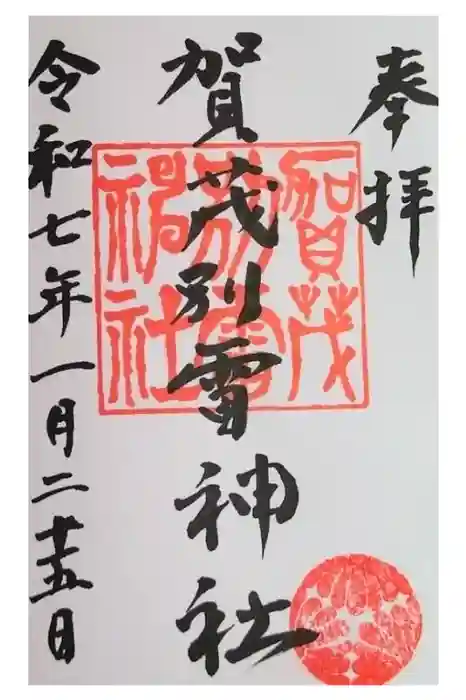 奉拝
賀茂別雷神社
令和七年一月二十五日
賀茂
別雷
神社